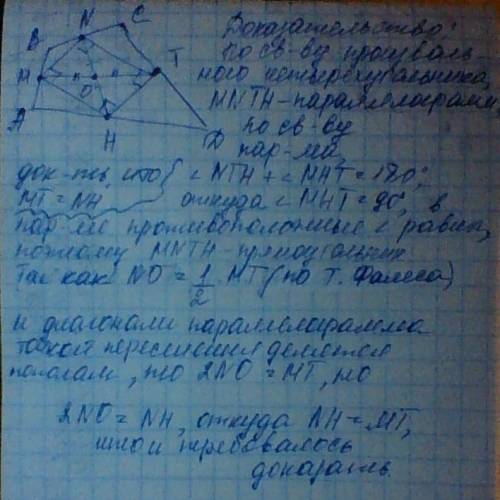 B N C
M O T
A H D
Доказательство:
по св-ву произволь-
ного четырехугольника,
MNTH-параллелограмм,
по св-ву
пар-ма,
док-ть, что { ∠NTH + ∠MHT = 180°,
MT = NH откуда ∠MHT = 90°, в
пар-ме противоположные ∠ равны,
поэтому MNTH-прямоугольник
Так как NO = 1/2 MT (по т. Фалеса)
и диагонали параллелограмма
точкой пересечения делятся
пополам, то 2NO = MT, но
2NO = NH, откуда NH = MT,
что и требовалось
доказать.